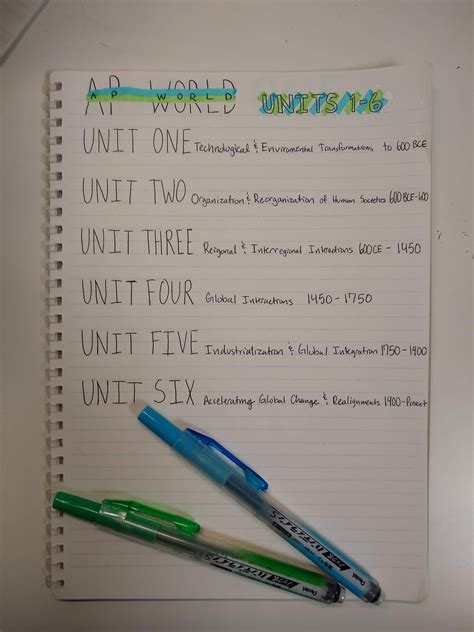 AP WORLD UNITS 1-6
AP WORLD
UNIT ONE Technological & Enviromental Transformations to 600 BCE
UNIT TWO Organization & Reorganization of Human Societies 600 BCE-600
UNIT THREE Reigonal & Interregional Interactions 600CE - 1450
UNIT FOUR Global Interactions 1450-1750
UNIT FIVE Industrialization & Global Integration 1750-1900
UNIT SIX Accelerating Global Change & Realignments 1900-Present
Pentel
Pentel